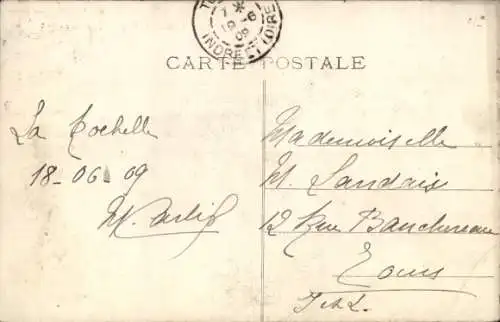 7 *
19 -6
09
INDRE-ET-LOIRE
CARTE POSTALE
La Rochelle
18-06-09
Mademoiselle
M. Landais
12 Rue Banchereau
Tours
I et L.